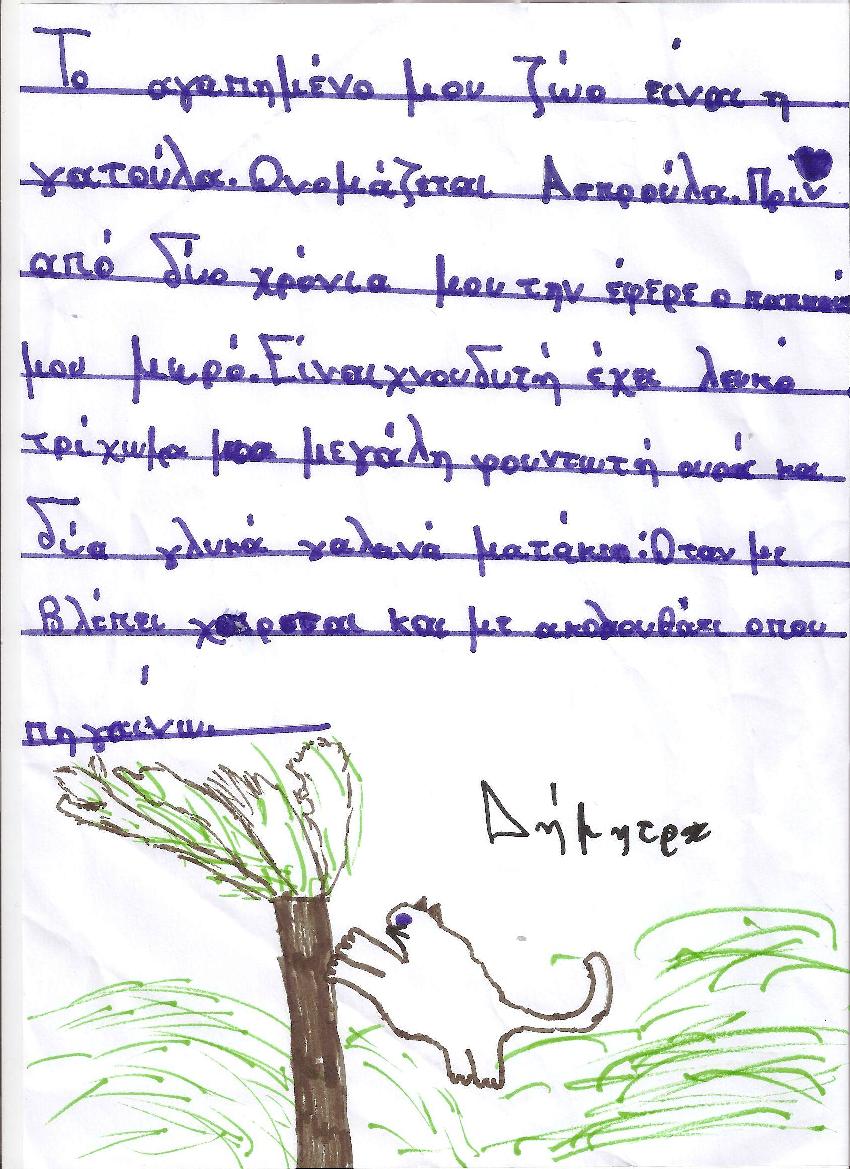 Το αγαπημένο μου ζώο είναι η
γατούλα. Ονομάζεται Ασπρούλα. Πριν
από δύο χρόνια μου την έφερε ο παππούς
μου μικρό. Είναι χνουδυτή έχει λευκό
τρίχωμα μια μεγάλη φουντωτή ουρά και
δύο γλυκά γαλανά ματάκια. Όταν με
βλέπει χαίρεται και με ακολουθάει οπου
πηγαίνω.
Δήμητρα